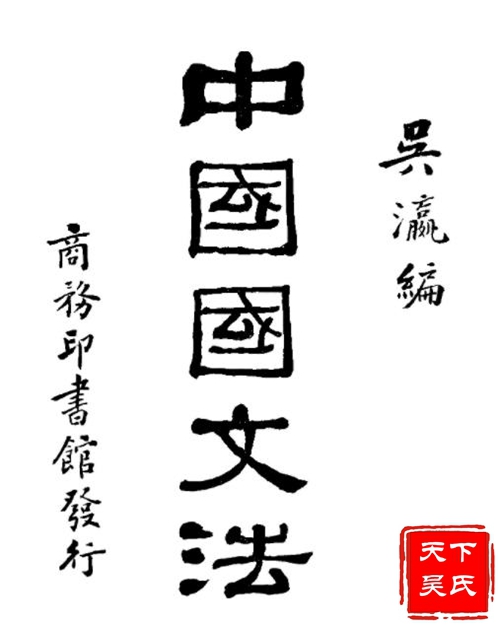 吳瀛編
中國國文法
商務印書館發行
天下
吴氏